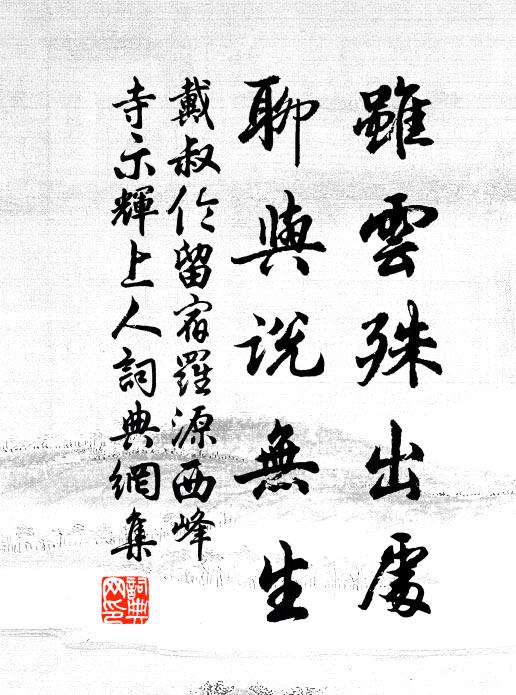 雖雲殊出處
聊與說無生
戴叔伦留宿羅源西峰
寺示輝上人詞典網集
詞典
網印